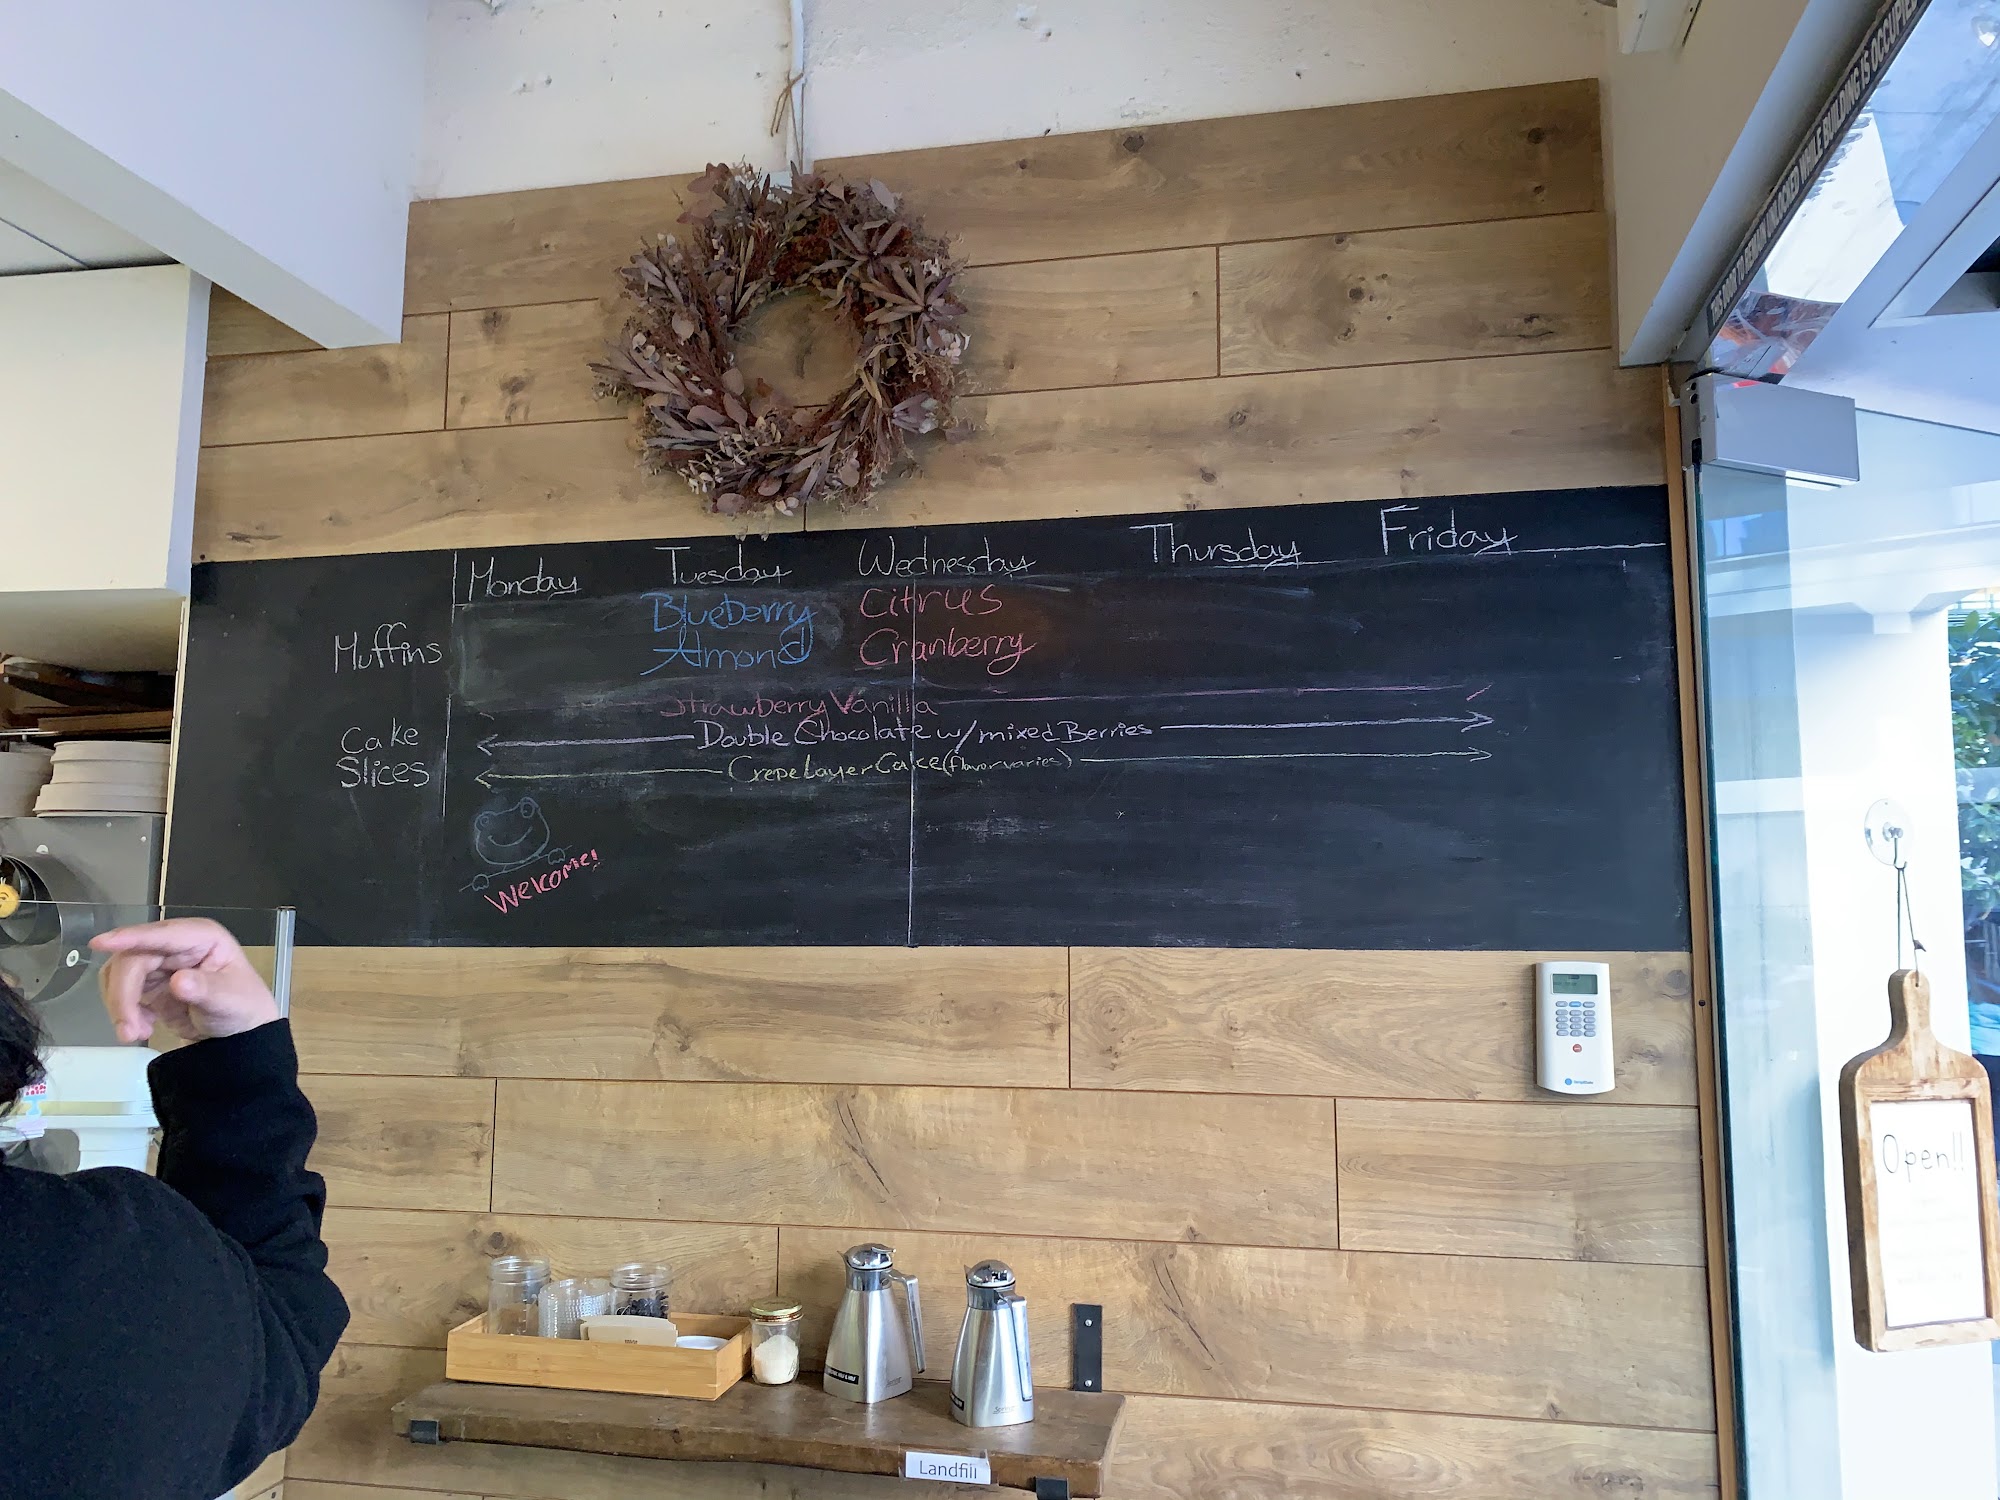 THIS DOOR TO REMAIN UNLOCKED WHILE BUILDING IS OCCUPIED
Monday Tuesday Wednesday Thursday Friday
Muffins
Blueberry Almond
Citrus Cranberry
Strawberry Vanilla
Cake Slices
Double Chocolate w/mixed Berries
Crepe Layer Cake (flavor varies)
Welcome!
Open!!
Landfill